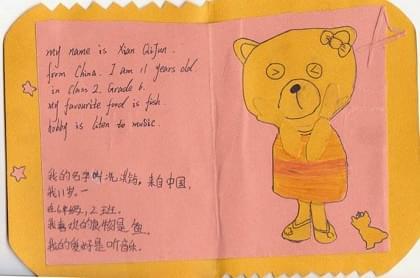 my name is Xian QiJun.
form China. I am 11 years old.
in Class 2. Grade 6.
my favourite food is fish.
hobby is liten to music.
我的名字叫冼淇 来自中国,
我11岁。一
在6年级,2班。
我喜欢的食物是 鱼
我的爱好是听音乐.